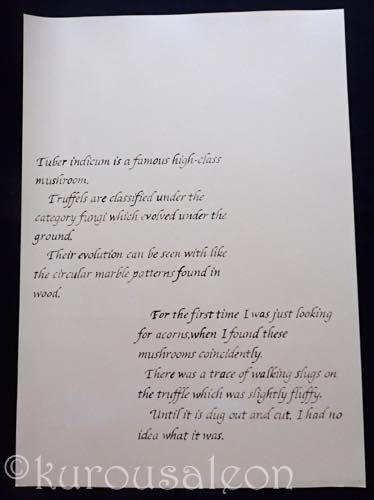 Tuber indicum is a famous high-class
mushroom.
Truffels are classified under the
category fungi which evolved under the
ground.
Their evolution can be seen with like
the circular marble patterns found in
wood.
For the first time I was just looking
for acorns,when I found these
mushrooms coincidently.
There was a trace of walking slugs on
the truffle which was slightly fluffy.
Until it is dug out and cut, I had no
idea what it was.
©kurousaleon